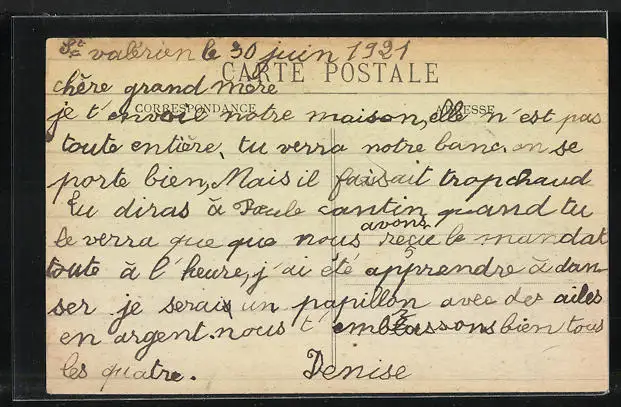 St valérien le 30 juin 1921
CARTE POSTALE
chère grand mère
CORRESPONDANCE ADRESSE
je t'envoie notre maison, elle n'est pas
toute entière, tu verra notre banc, on se
porte bien, Mais il faisait trop chaud
tu diras à Paule cantin quand tu
le verra que que nous avons reçue le mandat
toute à l'heure, j'ai été apprendre à dan
ser je serais un papillon avec des ailes
en argent. nous t'embrassons bien tous
les quatre. Denise